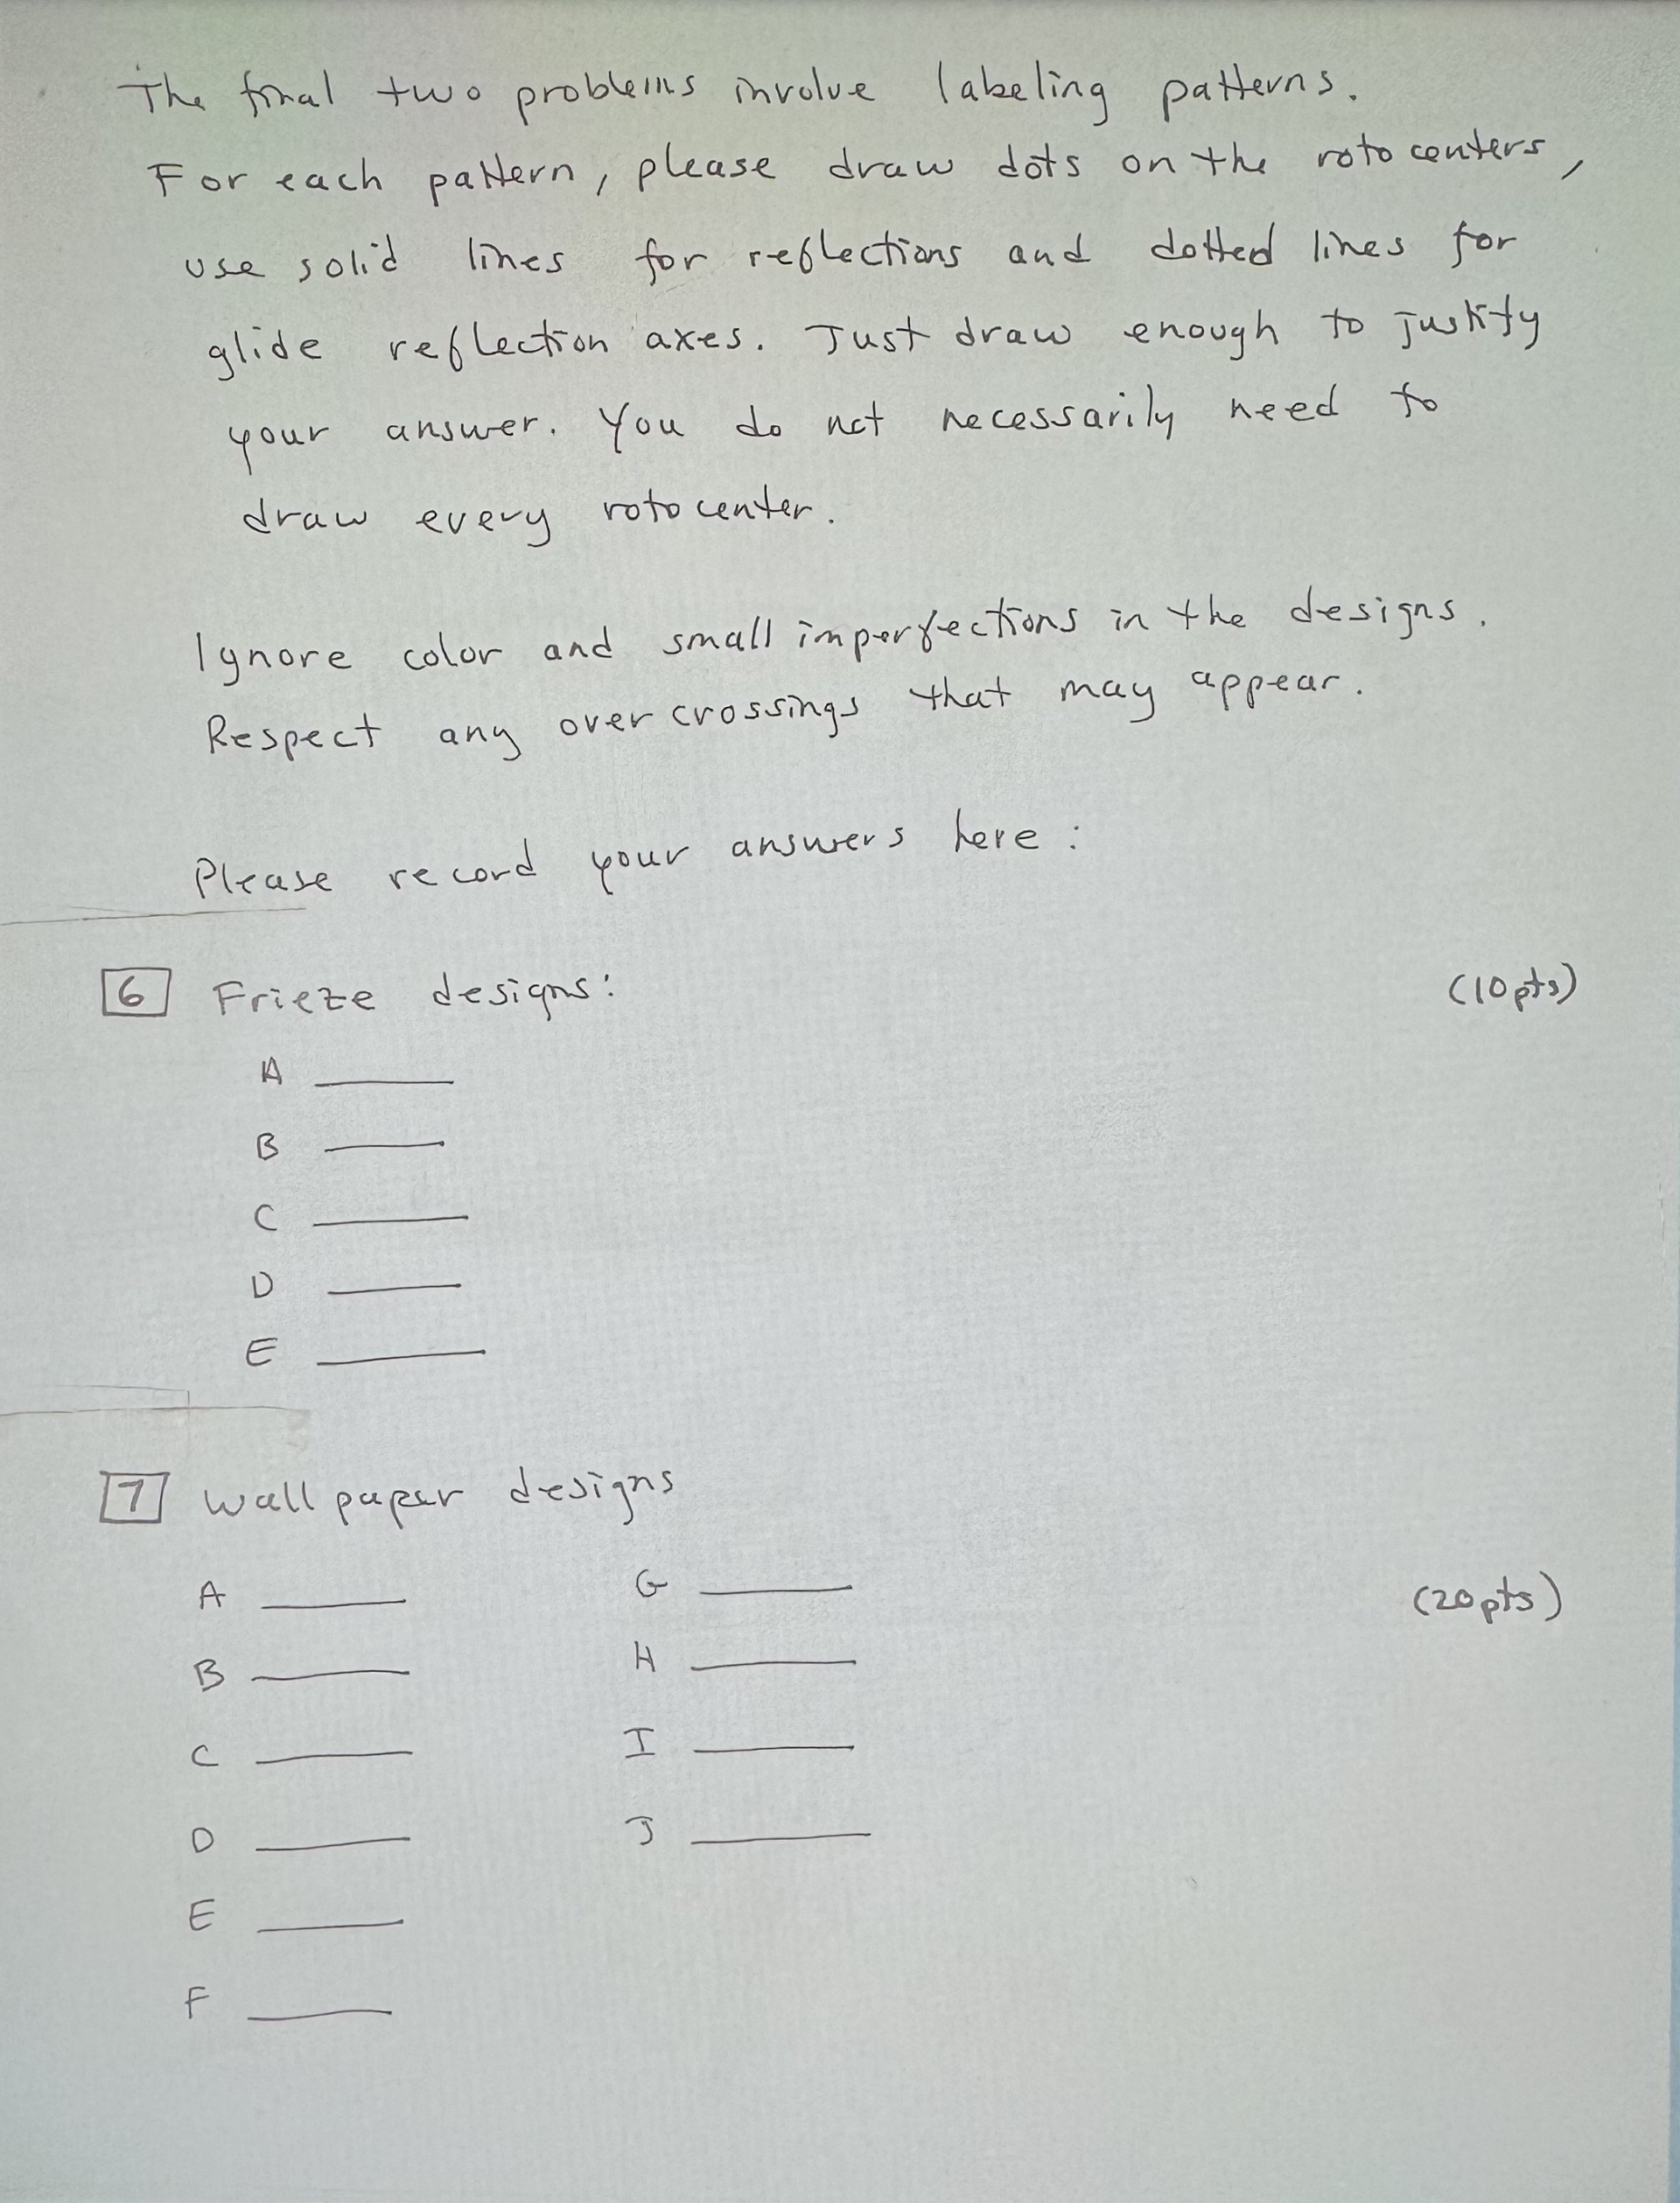 The final two problems involve labeling patterns.
For each pattern, please draw dots on the rotocenters,
use solid lines for reflections and dotted lines for
glide reflection axes. Just draw enough to justify
your answer. You do not necessarily need to
draw every rotocenter.
Ignore color and small imperfections in the designs.
Respect any over crossings that may appear.
Please record your answers here:
6 Frieze designs: (10pts)
A
B
C
D
E
7 Wallpaper designs
A G (20pts)
B H
C I
D J
E
F